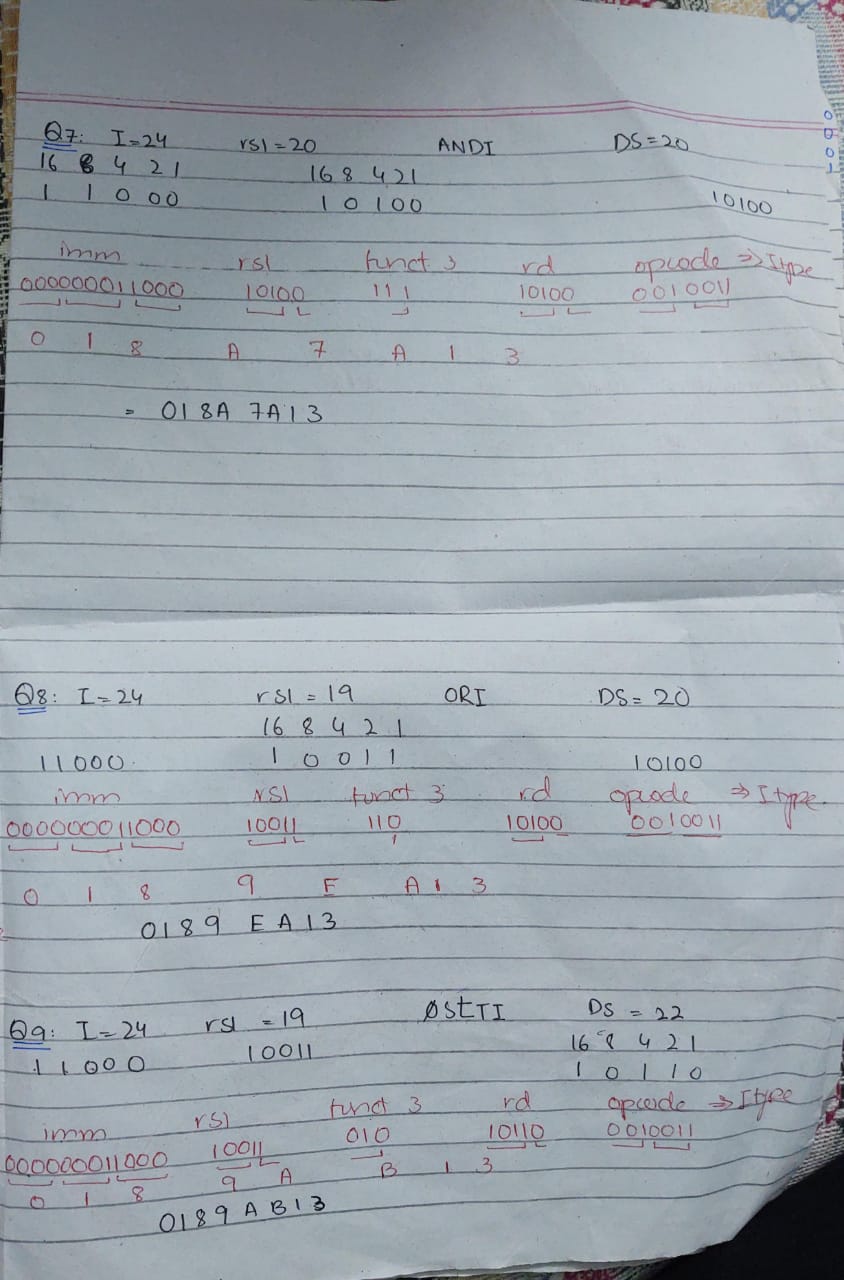 Q7: I=24 rs1=20 ANDI DS=20
16 8 4 2 1 16 8 4 2 1
1 1 0 0 0 1 0 1 0 0 10100
imm rs1 funct 3 rd opcode ⇒ Itype
000000011000 10100 111 10100 0010011
0 1 8 A 7 A 1 3
= 018A 7A13
Q8: I=24 rs1 = 19 ORI DS= 20
16 8 4 2 1
11000. 1 0 0 1 1 10100
imm rs1 funct 3 rd opcode ⇒ Itype.
000000011000 10011 110 10100 0010011
0 1 8 9 E A 1 3
0189 EA13
Q9: I=24 rs1 =19 DS = 22
11000 10011 16 8 4 2 1
1 0 1 1 0
imm rs1 funct 3 rd opcode ⇒ Itype
000000011000 10011 010 10110 0010011
0 1 8 9 A B 1 3
0189AB13